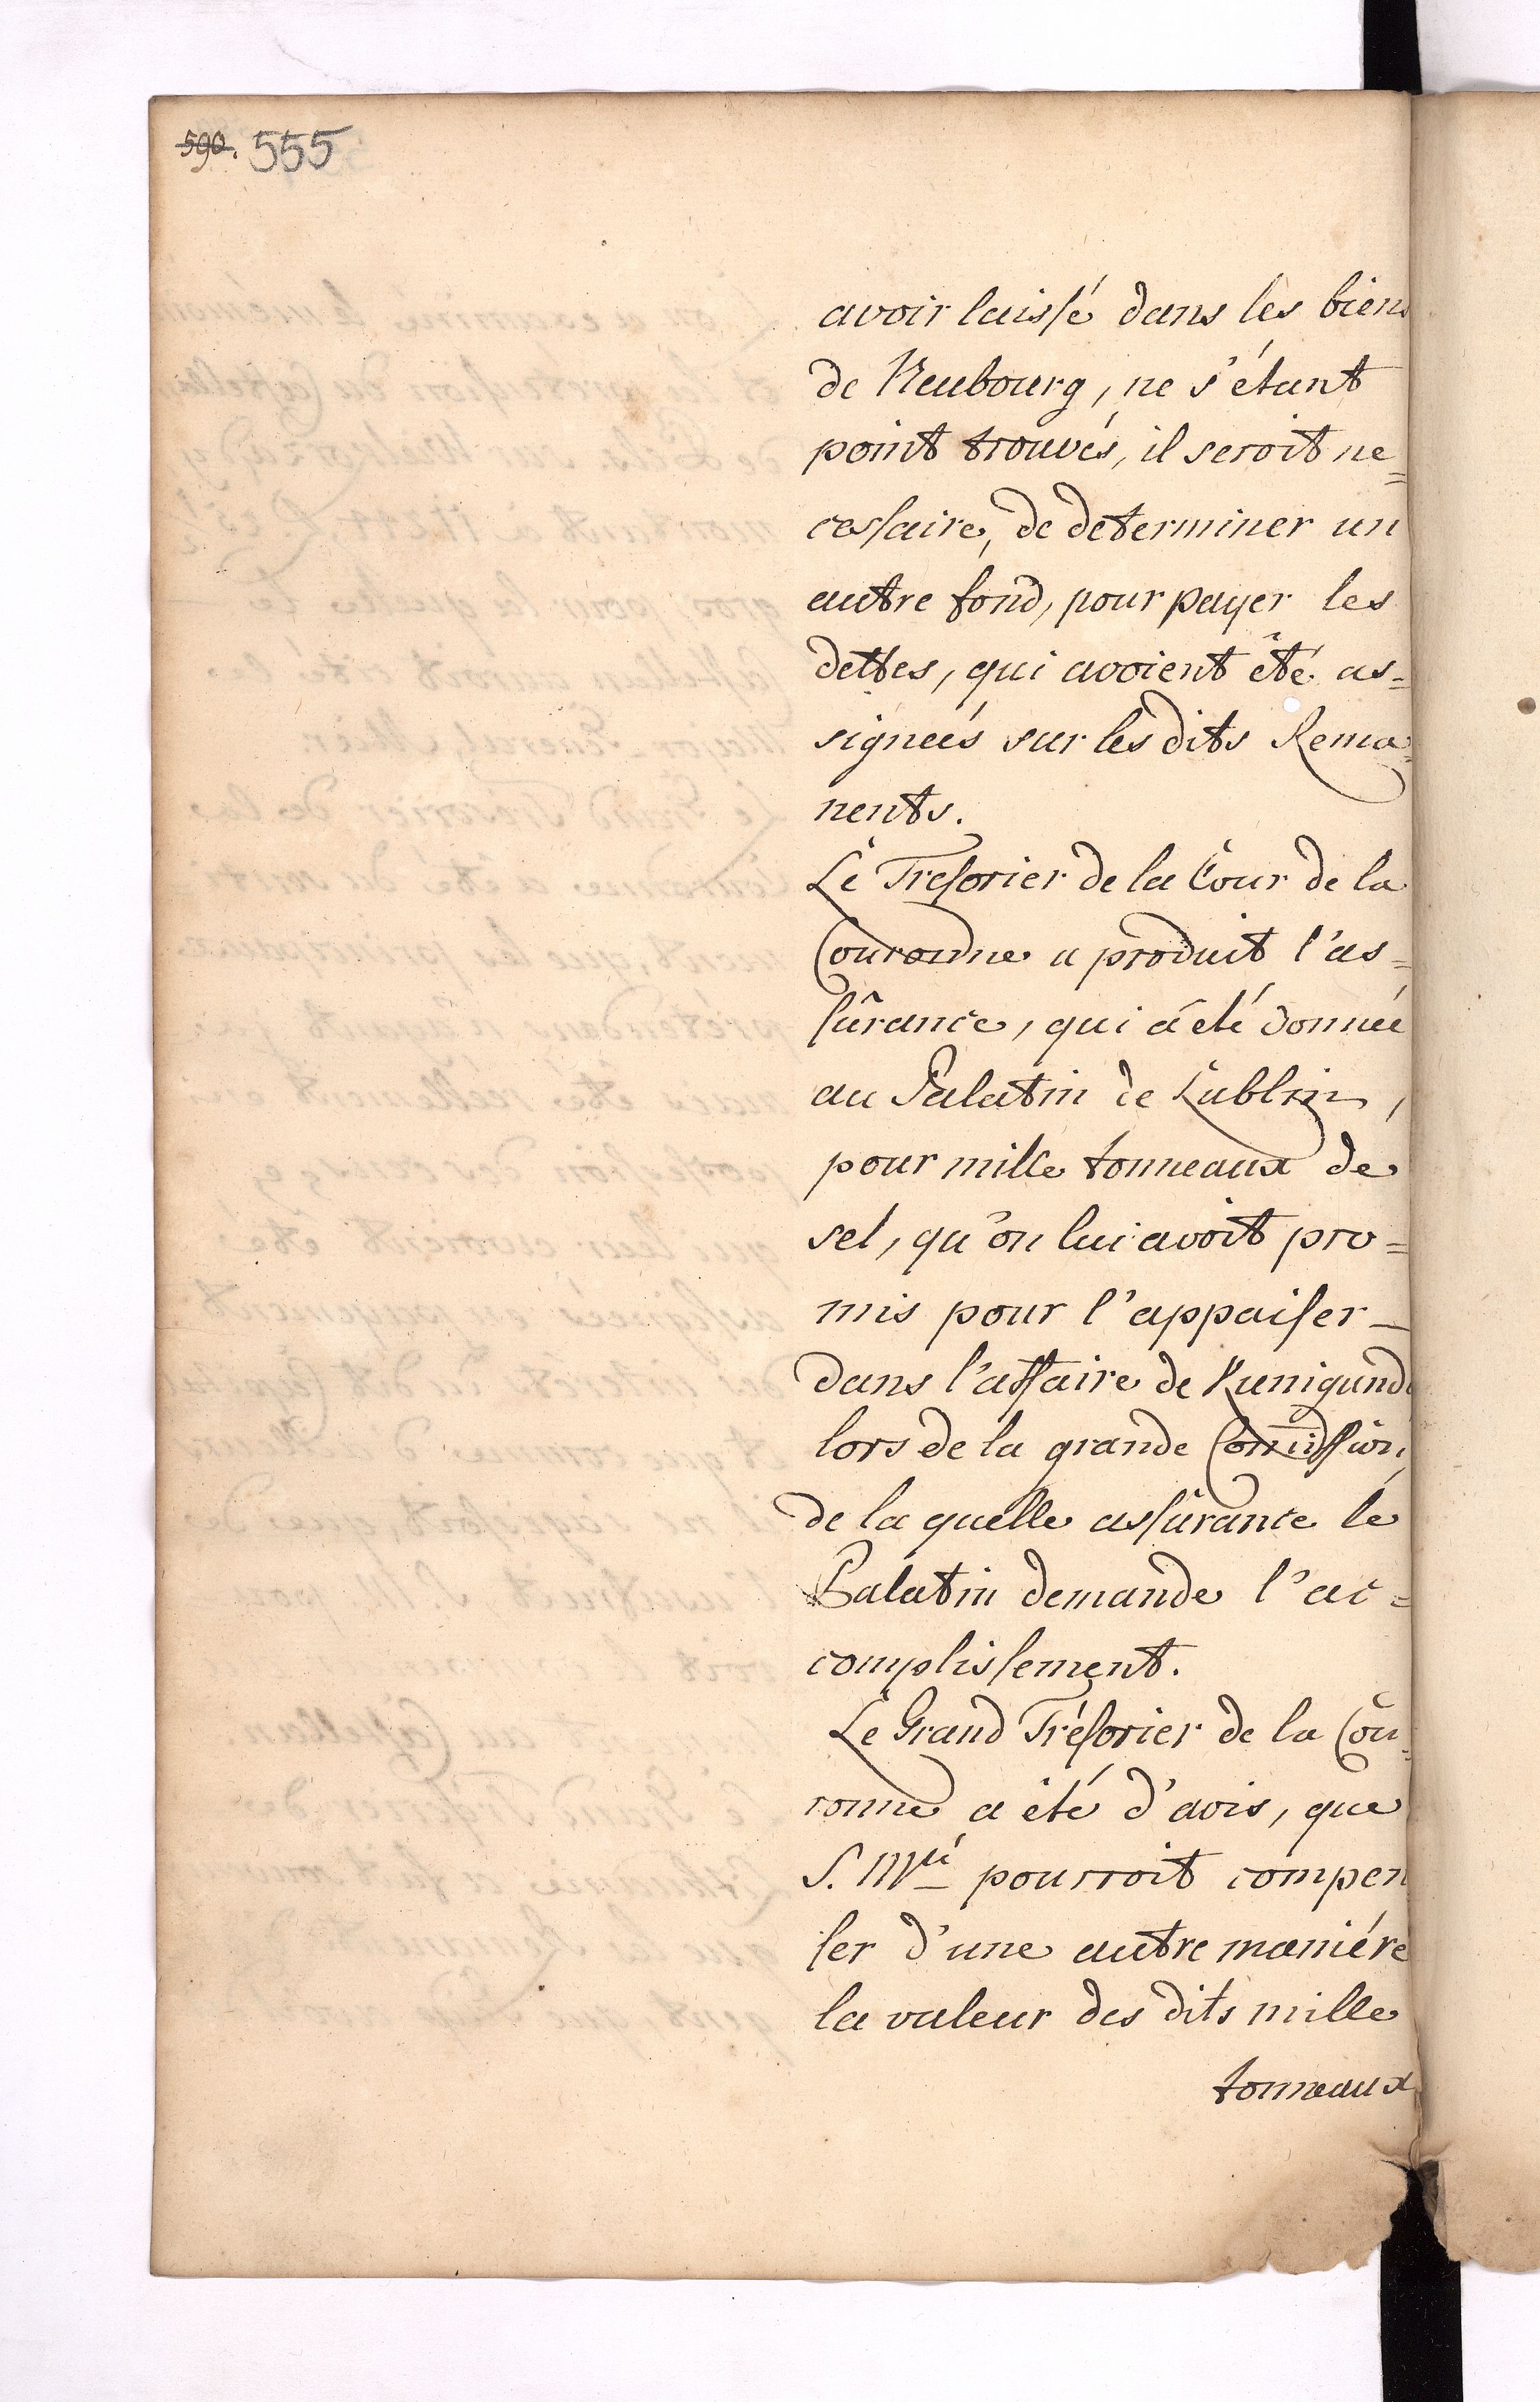 590. 555
avoir laissé dans les biens
de Neubourg, ne s'étant
point trouvés, il seroit ne=
cessaire, de determiner un
autre fond, pour payer les
dettes, qui avoient été as=
signeés sur les dits Rema=
nents.
Le Tresorier de la Cour de la
Couronne a produit l'as=
sûrance, qui á eté donneé
au Palatin de Lublin,
pour mille tonneaux de
sel, qu'on lui avoit pro=
mis pour l'appaiser
dans l'affaire de Kunigunde
lors de la grande Com̅ission,
de la quelle assûrance le
Palatin demande l'ac=
complissement.
Le Grand Trésorier de la Cou=
ronne a été d'avis, que
S. Mté pourroit compen
ser d'une autre maniére
la valeur des dits mille
tonneaux